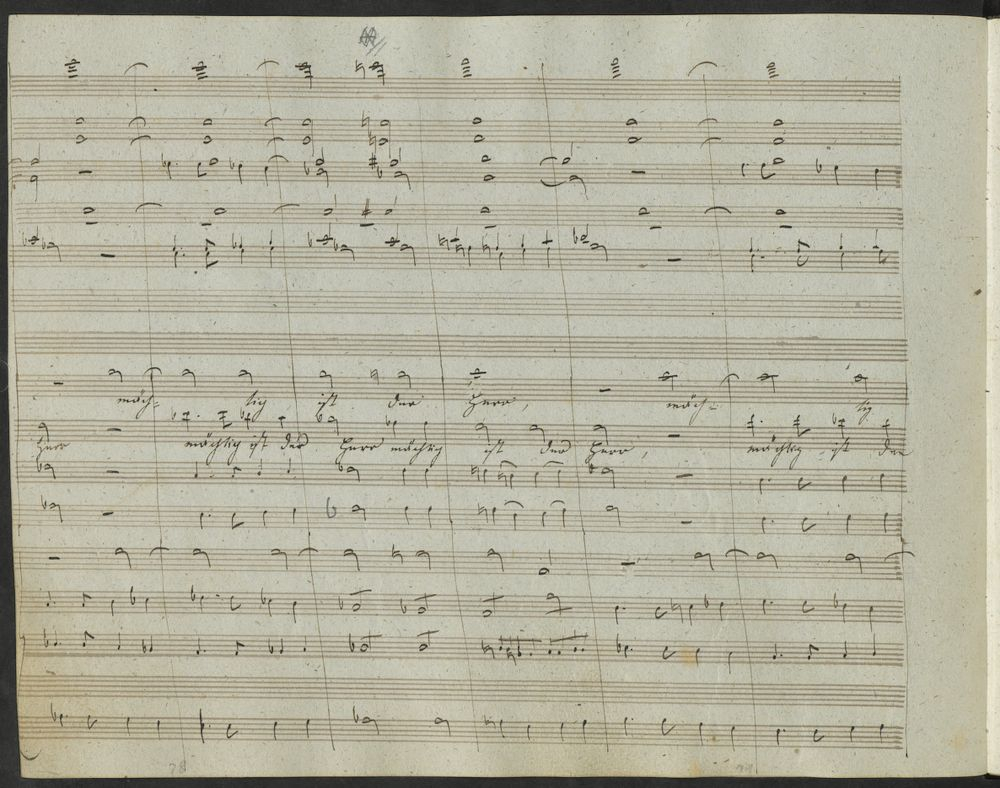 mäch- tig ist der Herr, mäch- tig
Herr mächtig ist der Herr mächtig ist der Herr, mächtig ist der
78 79